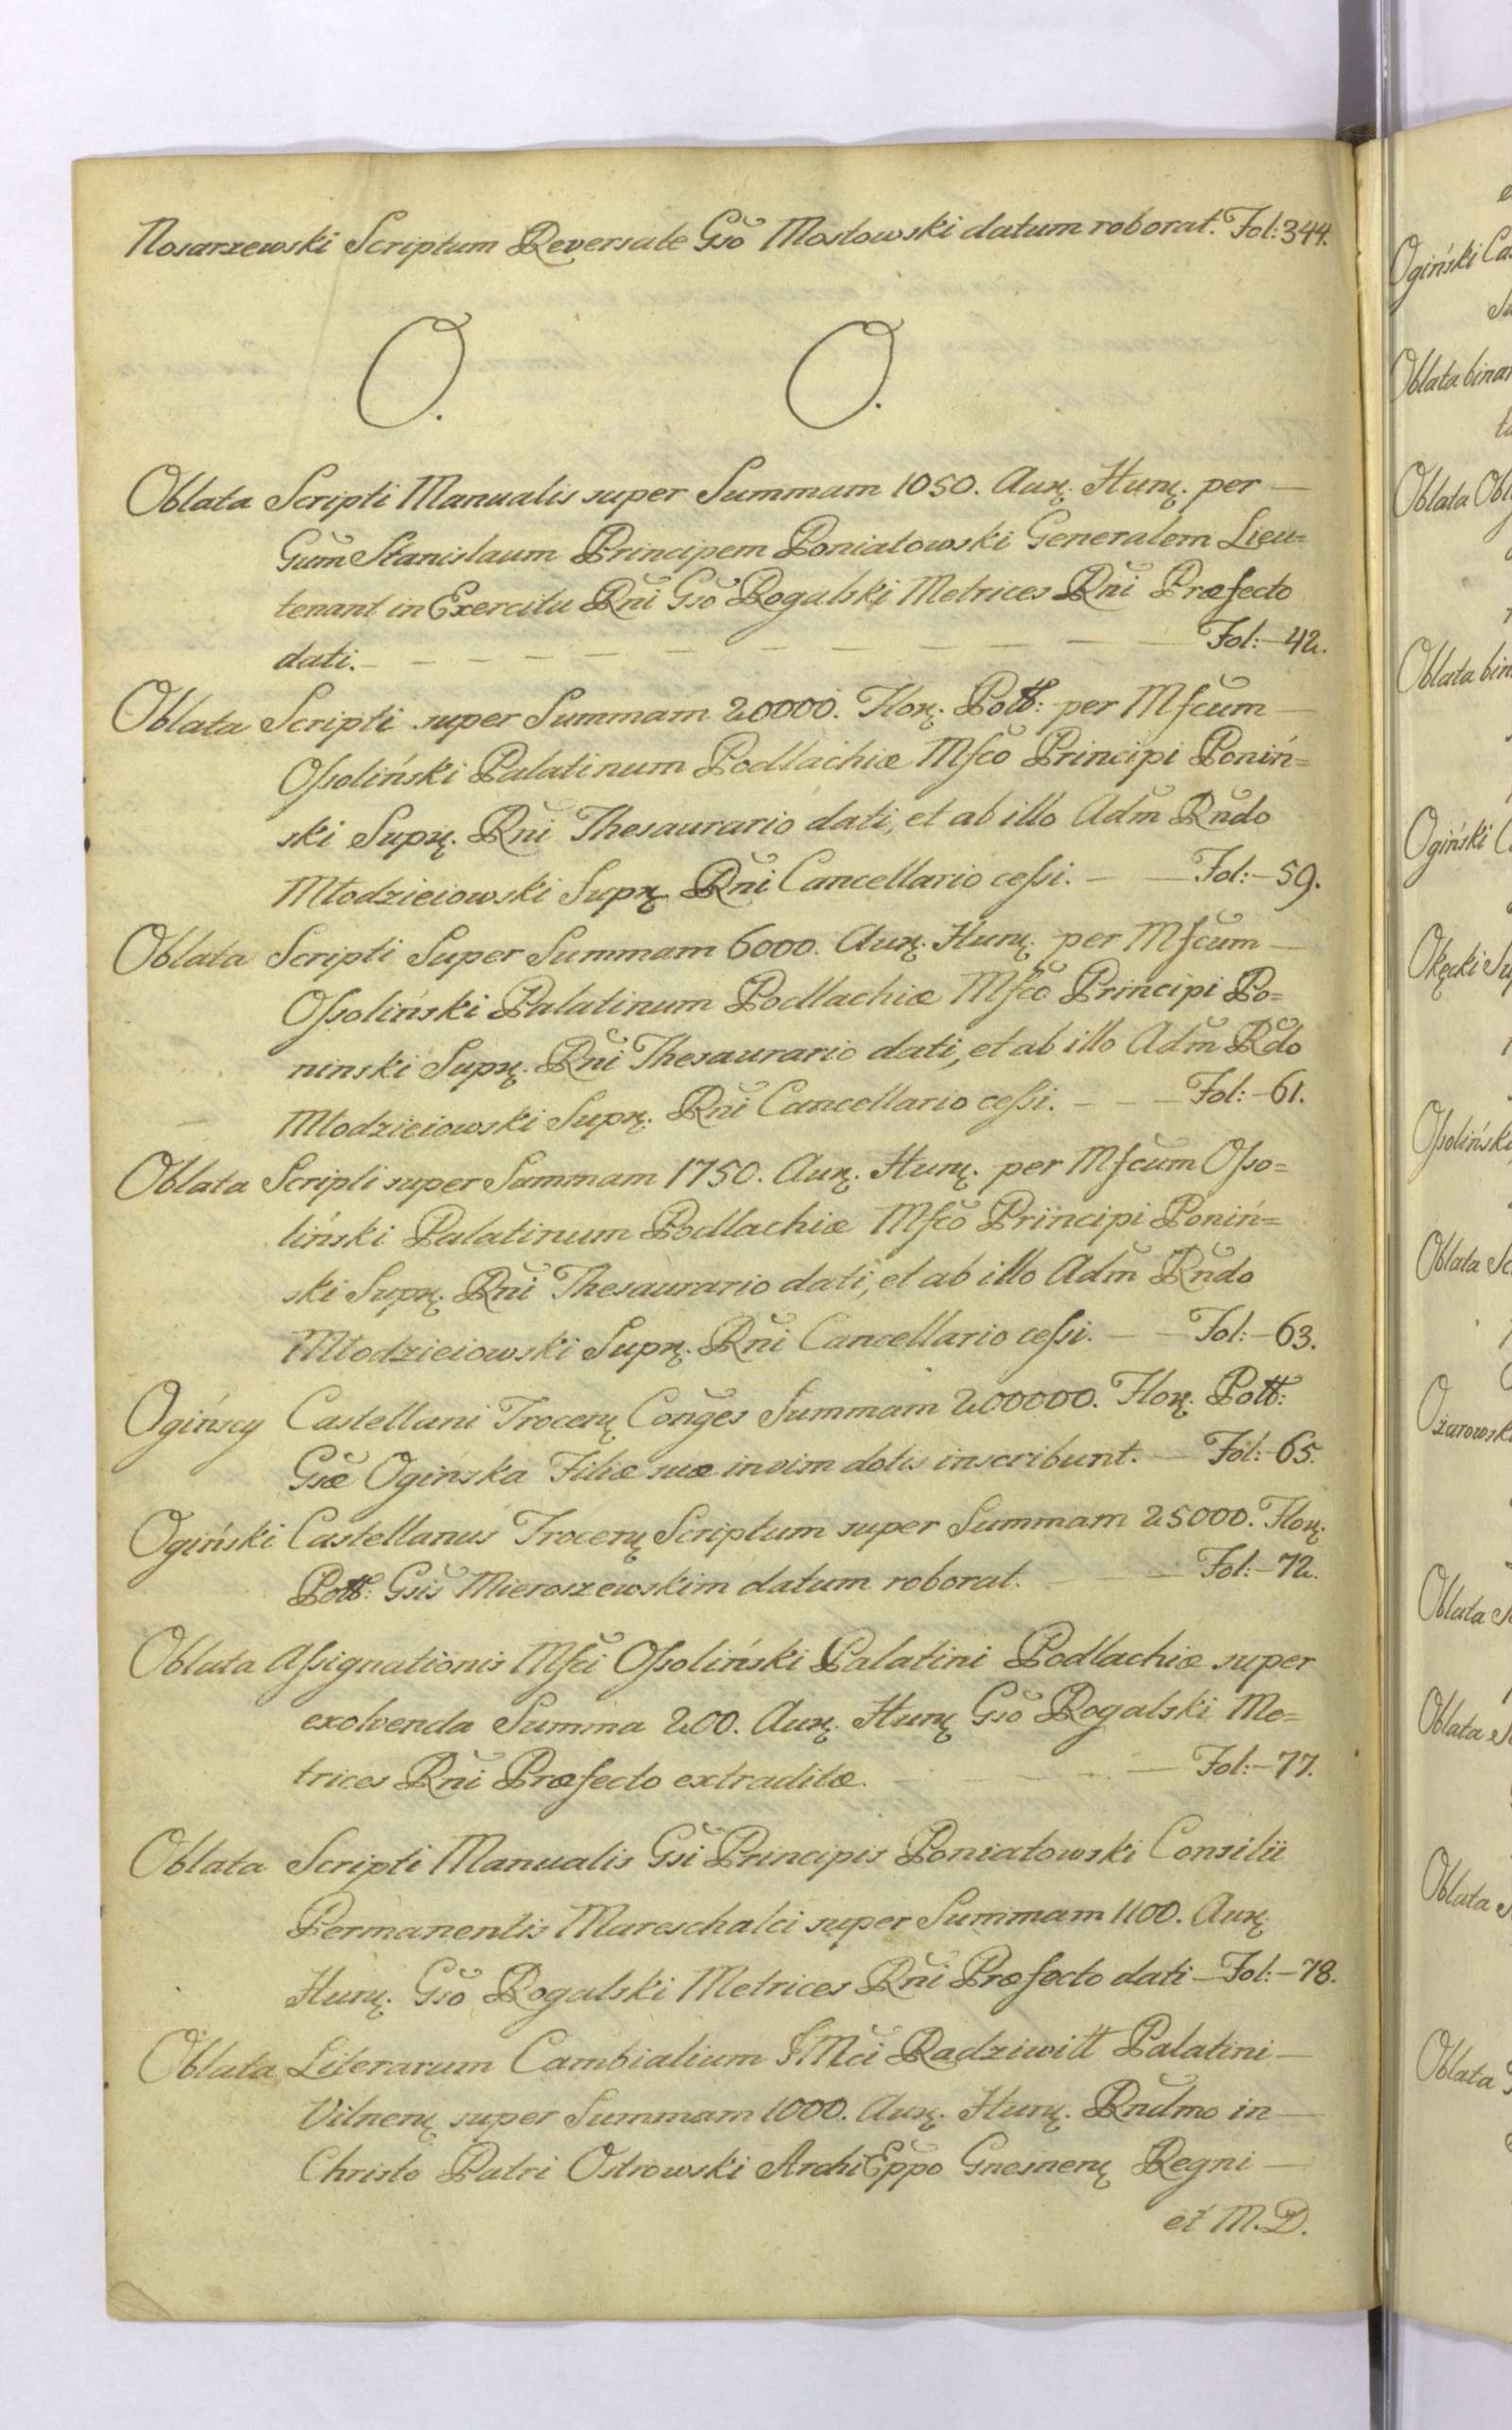 Nosarzewski Scriptum Reversale Gso Mostowski datum roborat. Fol: 344.
O. O.
Oblata Scripti Manualis super Summam 1050. Aurꝝ. Hunꝝ. per —
Gsum Stanislaum Principem Poniatowski Generalem Lieu=
tenant in Exercitu Rni Gso Rogalski Metrices Rni Præfecto
dati. — — — — — — — — — — Fol: — 42.
Oblata Scripti super Summam 20000. Florꝝ. Poll: per Mfcum —
Ossoliński Palatinum Podlachiæ Mfco Principi Poniń=
ski Supꝝ. Rni Thesaurario dati, et ab illo Adm Rndo
Młodzieiowski Supꝝ. Rni Cancellario cessi. — — Fol: — 59.
Oblata Scripti Super Summam 6000. Aurꝝ. Hunꝝ. per Mfcum —
Ossoliński Palatinum Podlachiæ Mfco Principi Po=
ninski Supꝝ. Rni Thesaurario dati, et ab illo Adm Rdo
Młodzieiowski Supꝝ. Rni Cancellario cessi. — — — Fol: — 61.
Oblata Scripti super Summam 1750. Aurꝝ. Hunꝝ. per Mfcum Osso=
liński Palatinum Podlachiæ Mfco Principi Poniń=
ski Supꝝ. Rni Thesaurario dati, et ab illo Adm Rndo
Młodzieiowski Supꝝ. Rni Cancellario cessi. — — Fol: — 63.
Ogińscy Castellani Trocenꝝ Conges Summam 200000. Florꝝ. Poll:
Gsæ Oginska Filiæ suæ in vim dotis inscribunt. — Fol: — 65.
Ogiński Castellanus Trocenꝝ Scriptum super Summam 25000. Florꝝ.
Poll: Gsis Mieroszewskim datum roborat. — — Fol: — 72.
Oblata Assignationis Mfci Ossoliński Palatini Podlachiæ super
exolvenda Summa 200. Aurꝝ. Hunꝝ Gso Rogalski Me=
trices Rni Præfecto extraditæ. — — — — Fol: — 77.
Oblata Scripti Manualis Gsi Principis Poniatowski Consilii
Permanentis Mareschalci super Summam 1100. Aurꝝ.
Hunꝝ. Gso Rogalski Metrices Rni Præfecto dati — Fol: — 78.
Oblata Literarum Cambialium Mci Radziwiłł Palatini —
Vilnenꝝ super Summam 1000. Aurꝝ. Hunꝝ. Rndmo in —
Christo Patri Ostrowski Archi Eppo Gnesnenꝝ Regni —
et M. D.
Ogiński
Oblata
Oblata
Oblata
Ogiński
Okęcki
Ossolińsk
Oblata
Ożarowsk
Oblata
Oblata
Oblata
Oblata